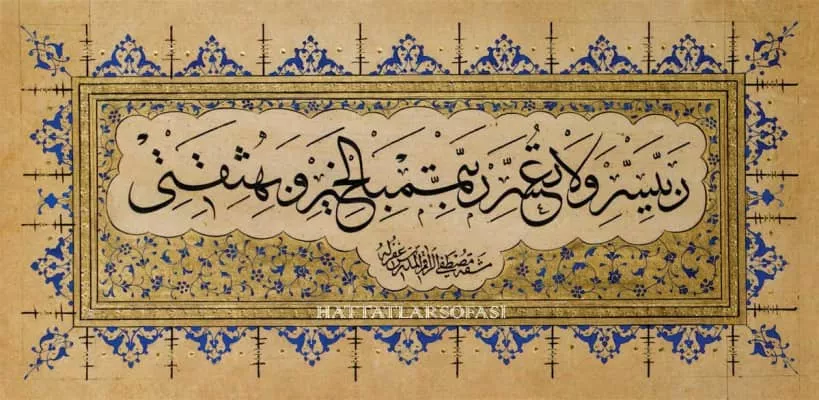 رب يسر ولا تعسر رب تمم بالخير وبه ثقتي
مشقه مصطفى الراقم غفرله
HATTATLARSOFASI